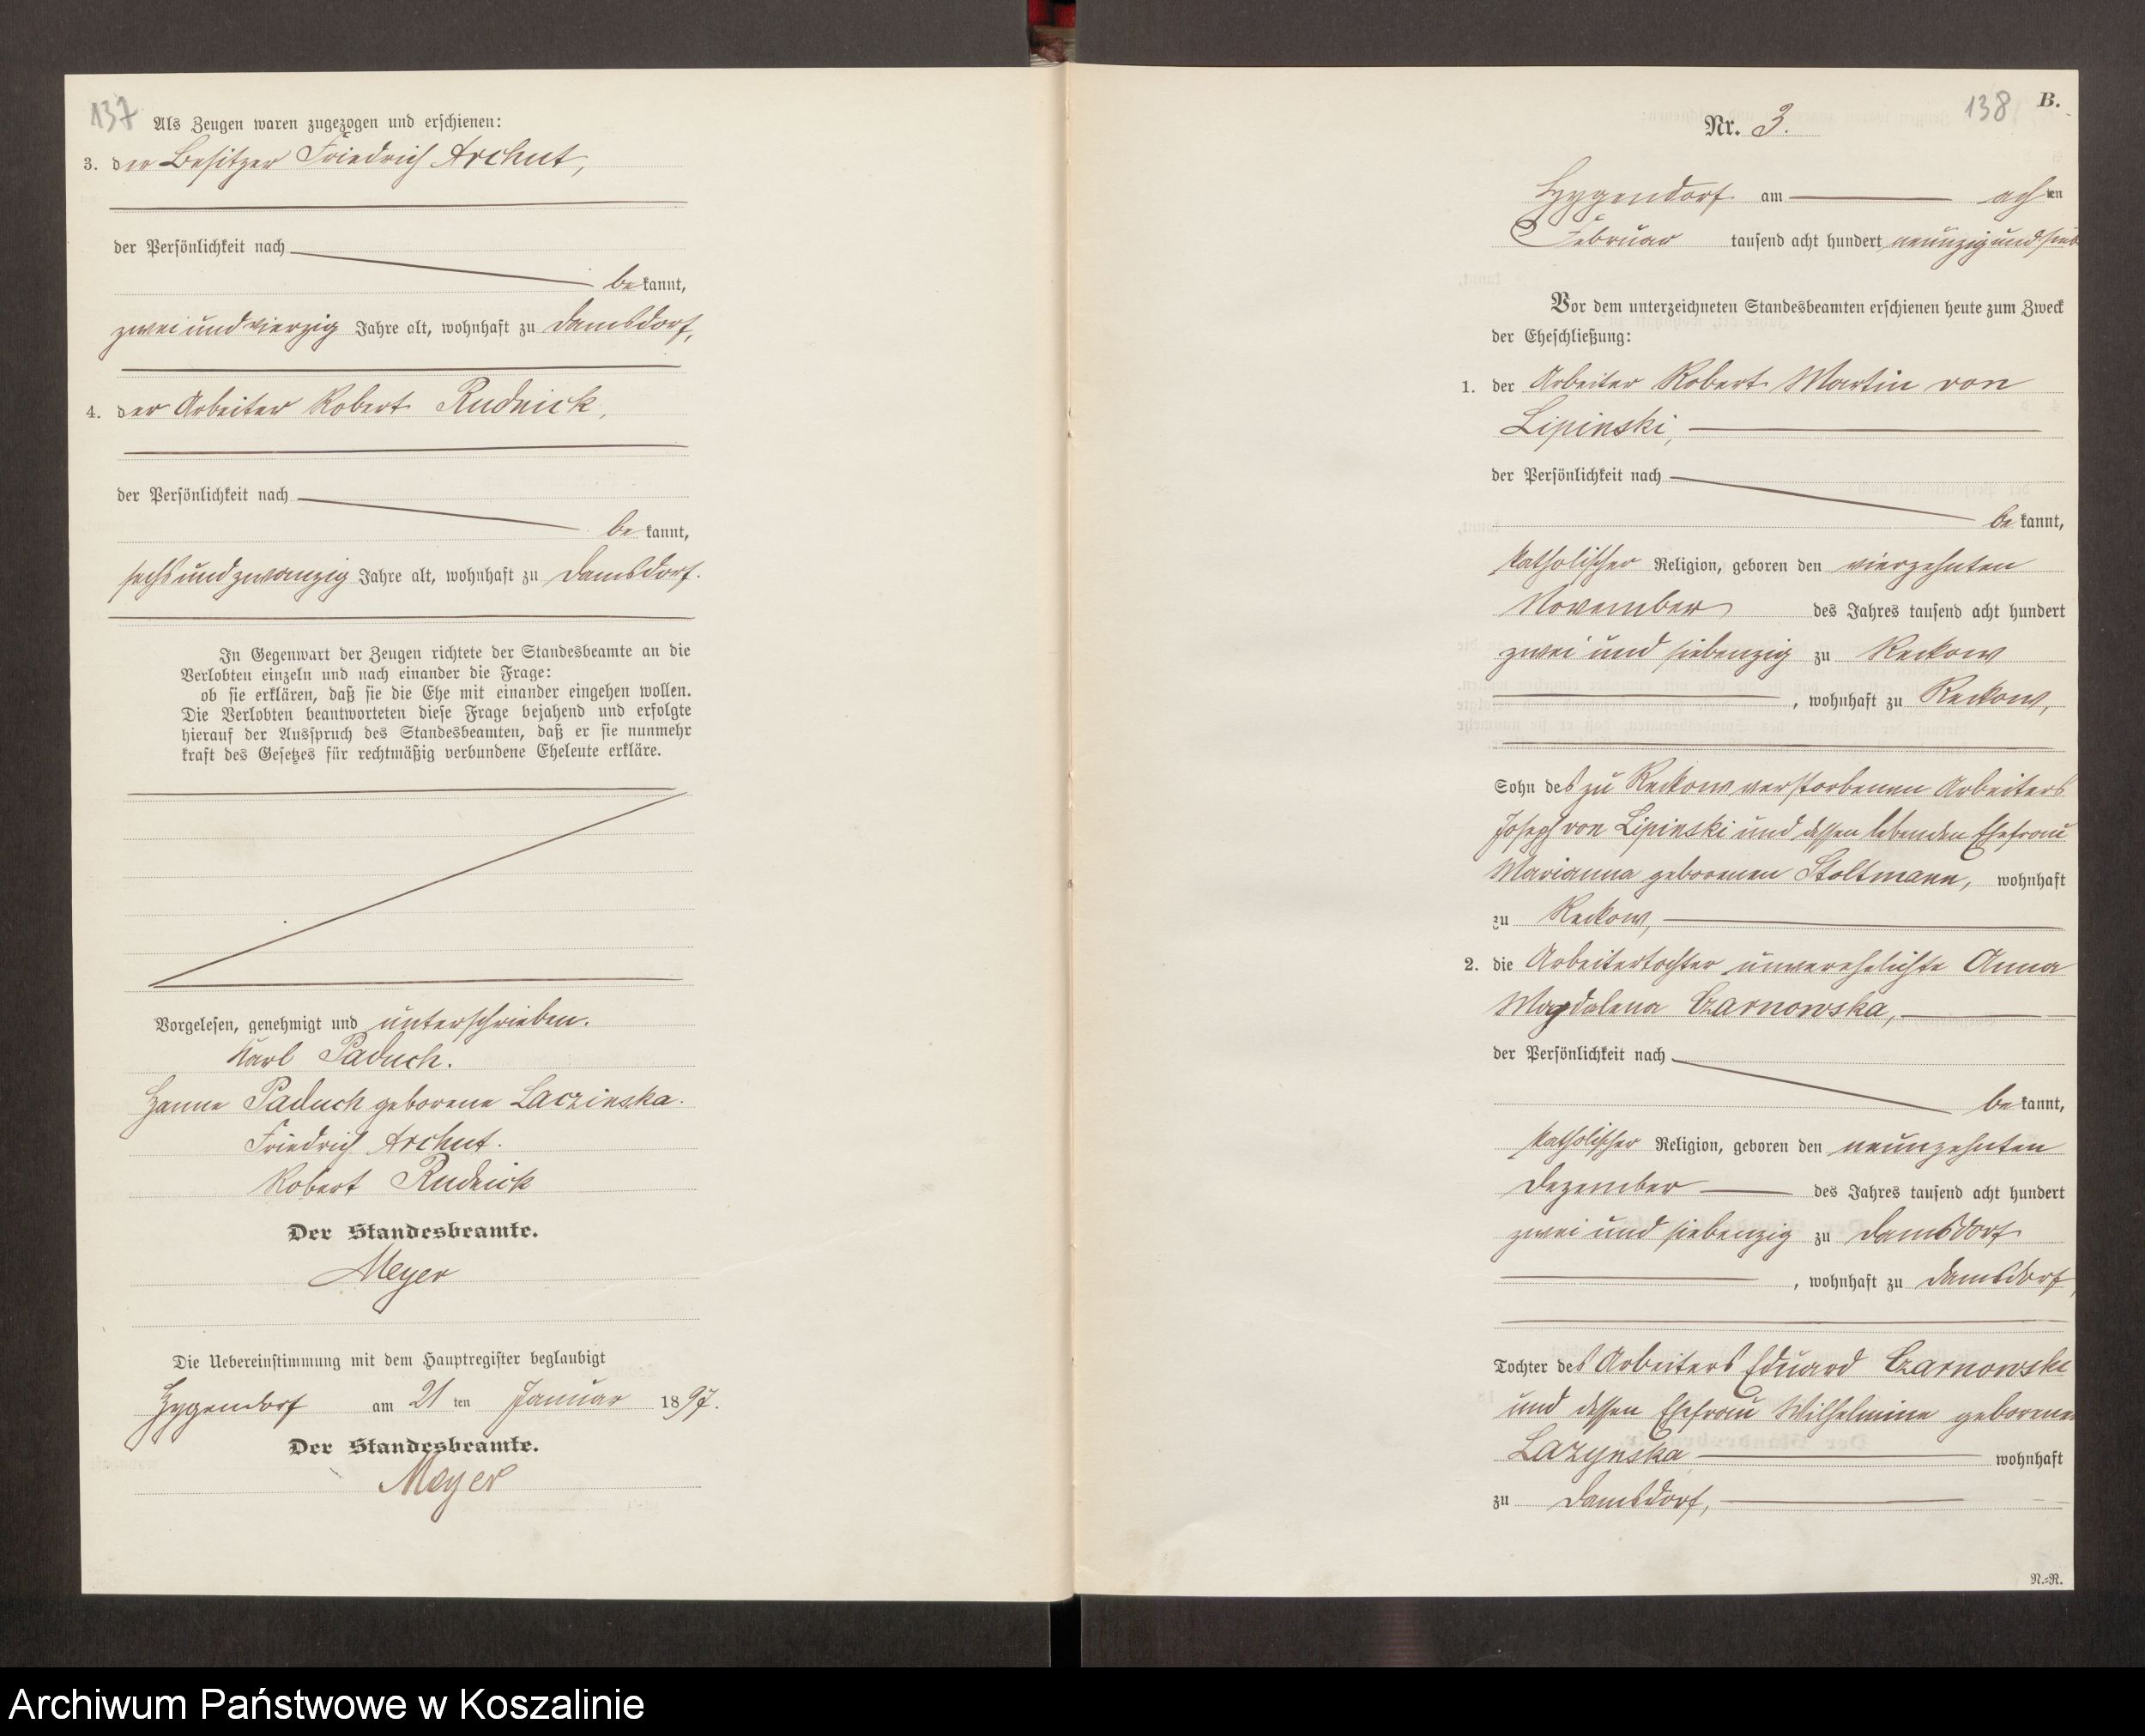 137
Als Zeugen waren zugezogen und erschienen:
3. der Besitzer Friedrich Archut,
der Persönlichkeit nach
bekannt,
zwei und vierzig Jahre alt, wohnhaft zu Damsdorf,
4. der Arbeiter Robert Rudnick,
der Persönlichkeit nach
bekannt,
sechs und zwanzig Jahre alt, wohnhaft zu Damsdorf.
In Gegenwart der Zeugen richtete der Standesbeamte an die
Verlobten einzeln und nach einander die Frage:
ob sie erklären, daß sie die Ehe mit einander eingehen wollen.
Die Verlobten beantworteten diese Frage bejahend und erfolgte
hierauf der Ausspruch des Standesbeamten, daß er sie nunmehr
kraft des Gesetzes für rechtmäßig verbundene Eheleute erkläre.
Vorgelesen, genehmigt und unterschrieben.
Karl Paduch.
Hanne Paduch geborene Laczinska.
Friedrich Archut.
Robert Rudnick
Der Standesbeamte.
Meyer
Die Uebereinstimmung mit dem Hauptregister beglaubigt
Hygendorf am 21 ten Januar 1897.
Der Standesbeamte.
Meyer
138 B.
Nr. 3.
Hygendorf am achten
Februar tausend acht hundert neunzig und sieb
Vor dem unterzeichneten Standesbeamten erschienen heute zum Zweck
der Eheschließung:
1. der Arbeiter Robert Martin von
Lipinski,
der Persönlichkeit nach
bekannt,
katholischer Religion, geboren den vierzehnten
November des Jahres tausend acht hundert
zwei und siebenzig zu Reckow
, wohnhaft zu Reckow,
Sohn des zu Reckow verstorbenen Arbeiters
Joseph von Lipinski und dessen lebenden Ehefrau
Marianna geborenen Stoltmann, wohnhaft
zu Reckow,
2. die Arbeitertochter unverehelichte Anna
Magdalena Czarnowska,
der Persönlichkeit nach
bekannt,
katholischer Religion, geboren den neunzehnten
Dezember des Jahres tausend acht hundert
zwei und siebenzig zu Damsdorf
, wohnhaft zu Damsdorf,
Tochter des Arbeiters Eduard Czarnowski
und dessen Ehefrau Wilhelmine geborenen
Lazynska wohnhaft
zu Damsdorf,
N.=R.
Archiwum Państwowe w Koszalinie